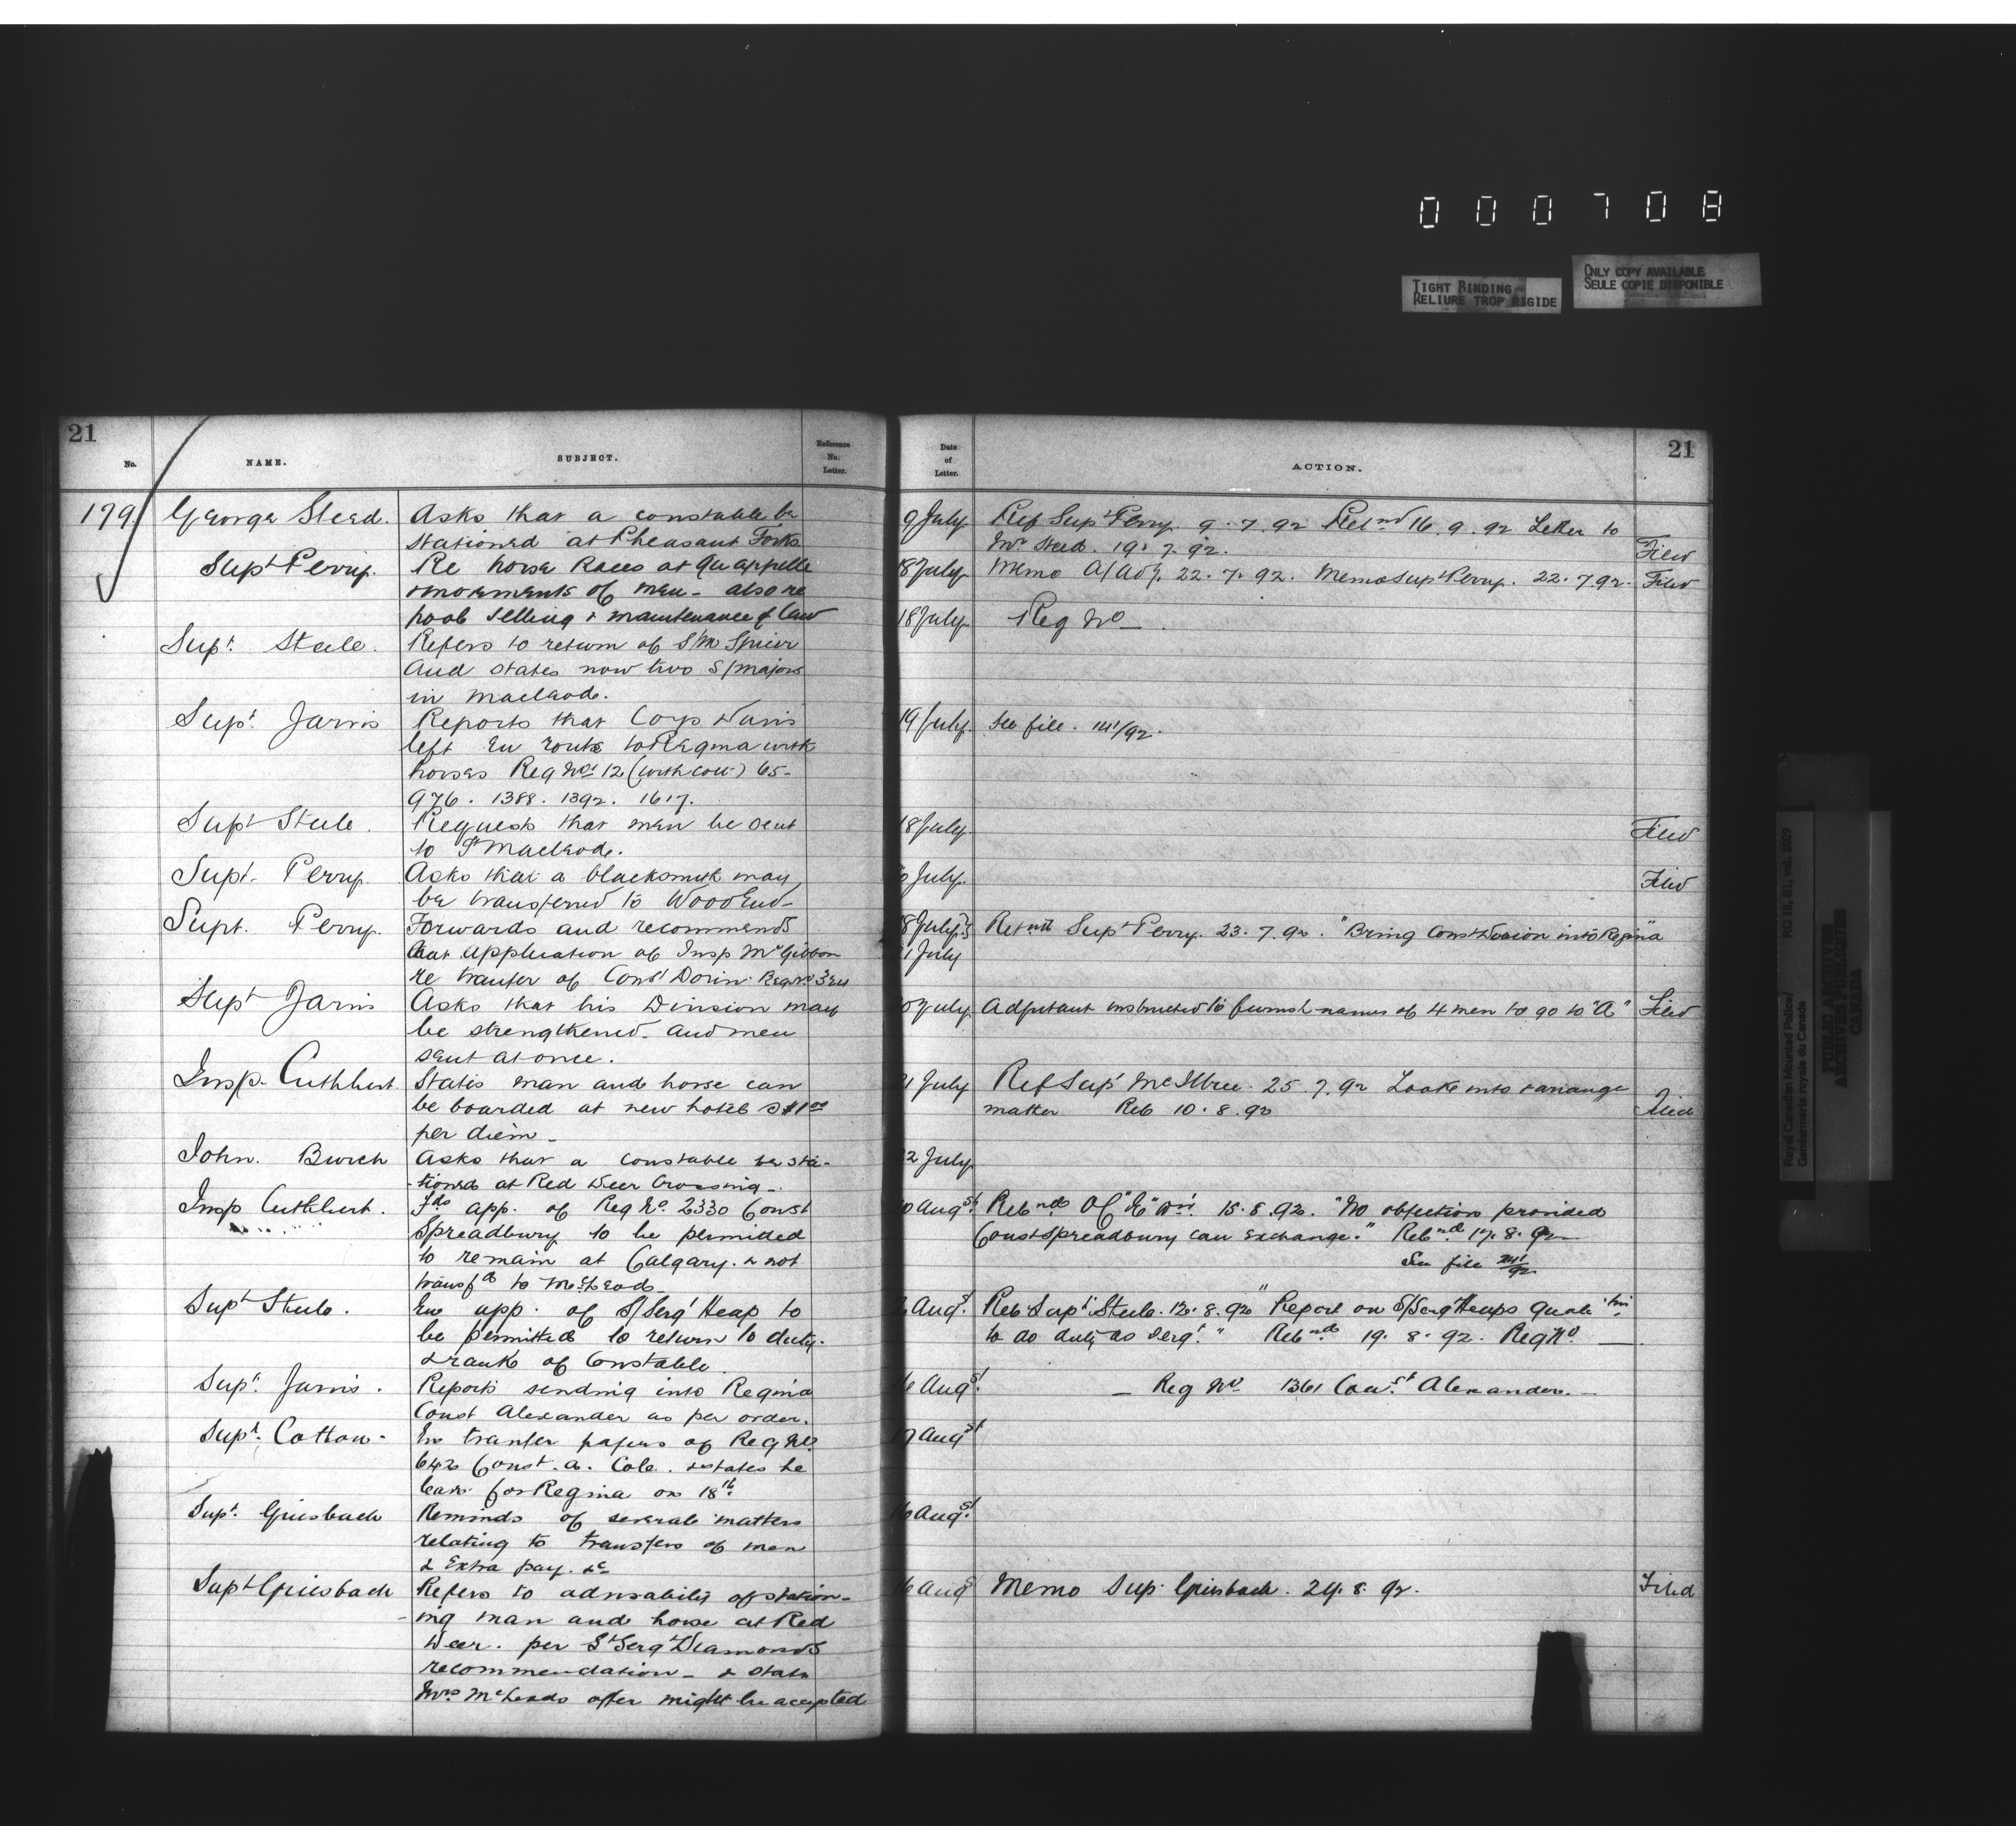 000708
TIGHT BINDING
RELIURE TROP RIGIDE
ONLY COPY AVAILABLE
SEULE COPIE DISPONIBLE
21
No. NAME. SUBJECT. Reference No. Letter.
179. George Steed. Asks that a constable be
stationed at Pheasant Forks
Supt Perry. Re horse Races at Qu'appelle
& movements of men - also re
pool selling & maintenance of law
Supt. Steele. Refers to return of S/M Spicer
and states now two S/Majors
in Macleod.
Supt. Jarvis Reports that Corp Davis
left En route to Regina with
horses Reg Nos 12 (with colt) 65-
976. 1388. 1392. 1617.
Supt Steele. Requests that men be sent
to Ft Macleod.
Supt. Perry. Asks that a blacksmith may
be transferred to Wood End-
Supt. Perry. Forwards and recommends
that application of Insp McGibbon
re transfer of Const Dorion Reg No
Supt Jarvis Asks that his Division may
be strengthened - and men
sent at once.
Insp. Cuthbert States man and horse can
be boarded at new hotel @ $1.00
per diem -
John. Burch Asks that a constable be sta-
-tioned at Red Deer Crossing -
Insp Cuthbert. Fds app. of Reg No. 2330 Const
Spreadbury to be permitted
to remain at Calgary. & not
transfd to McLeod
Supt Steele. En app. of S/Sergt Heap to
be permitted to return to duty.
& rank of Constable.
Supt. Jarvis. Reports sending into Regina
Const Alexander as per order.
Supt. Cotton - En transfer papers of Reg No.
642 Const. A. Cole. & states he
leaves for Regina on 18th.
Supt. Griesbach Reminds of several matters
relating to transfers of men
& Extra pay. &c
Supt Griesbach Refers to advisability of station-
-ing man and horse at Red
Deer. per S/Sergt Diamonds
recommendation - & states
Mrs McLeods offer might be accepted
21
Date of Letter. ACTION.
9 July Ref Supt Perry 9.7.92 Retnd 16.9.92 Letter to
Mr Steed. 19.7.92. Filed
18 July Memo A/Adj. 22.7.92. Memo Supt Perry. 22.7.92. Filed
18 July Reg No —
19 July. See file. 141/92.
18 July Filed
July. Filed
18 July Retnd Supt Perry. 23.7.92. "Bring Const Dorion into Regina"
July
July Adjutant instructed to furnish names of 4 men to go to "A" Filed
21 July Ref Supt McIllree. 25.7.92 Look into & arrange
matter Ret 10.8.92 Filed
22 July
10 Augst. Retnd Of "E" Dn. 15.8.92. "No objection provided
Const Spreadbury can exchange." Retnd 17.8.92
See file 141/92
Augst. Ret Supt Steele. 12.8.92 "Report on S/Sergt Heaps qualn
to do duty as Sergt." Retnd 19.8.92. Reg No. —
16 Augst. — Reg No 1361 Const Alexander. —
17 Augst
16 Augst
16 Augst Memo Sup. Griesbach. 24.8.92. Filed
Royal Canadian Mounted Police/
Gendarmerie royale du Canada
RG 18, B1, vol.
PUBLIC ARCHIVES
ARCHIVES PUBLIQUES
CANADA